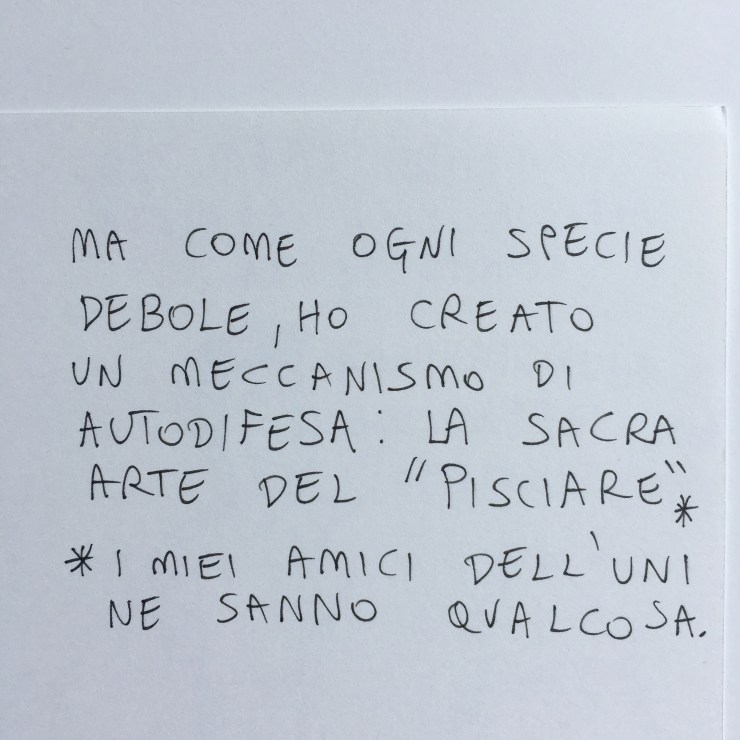 MA COME OGNI SPECIE
DEBOLE, HO CREATO
UN MECCANISMO DI
AUTODIFESA: LA SACRA
ARTE DEL "PISCIARE"*
* I MIEI AMICI DELL'UNI
NE SANNO QUALCOSA.